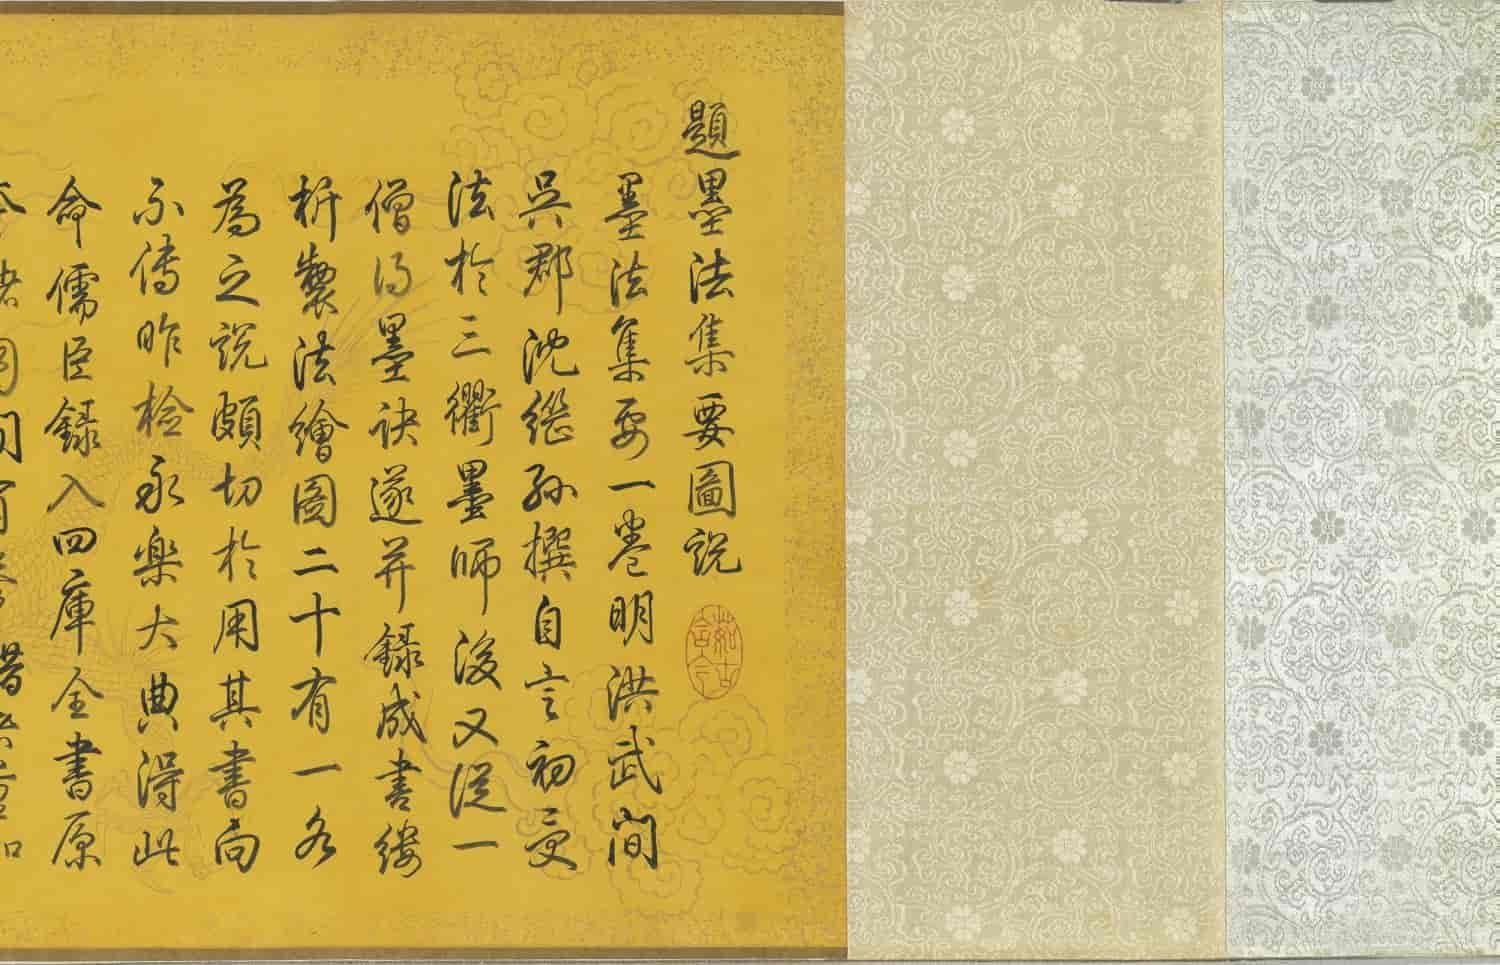 題墨法集要圖說
茹古含今
墨法集要一卷明洪武間
吳郡沈継孫撰自言初受
法於三衢墨師後又從一
僧得墨訣遂并錄成書縷
析製法繪圖二十有一各
為之說頗切於用其書向
不傳昨檢永樂大典得此
命儒臣錄入四庫全書原